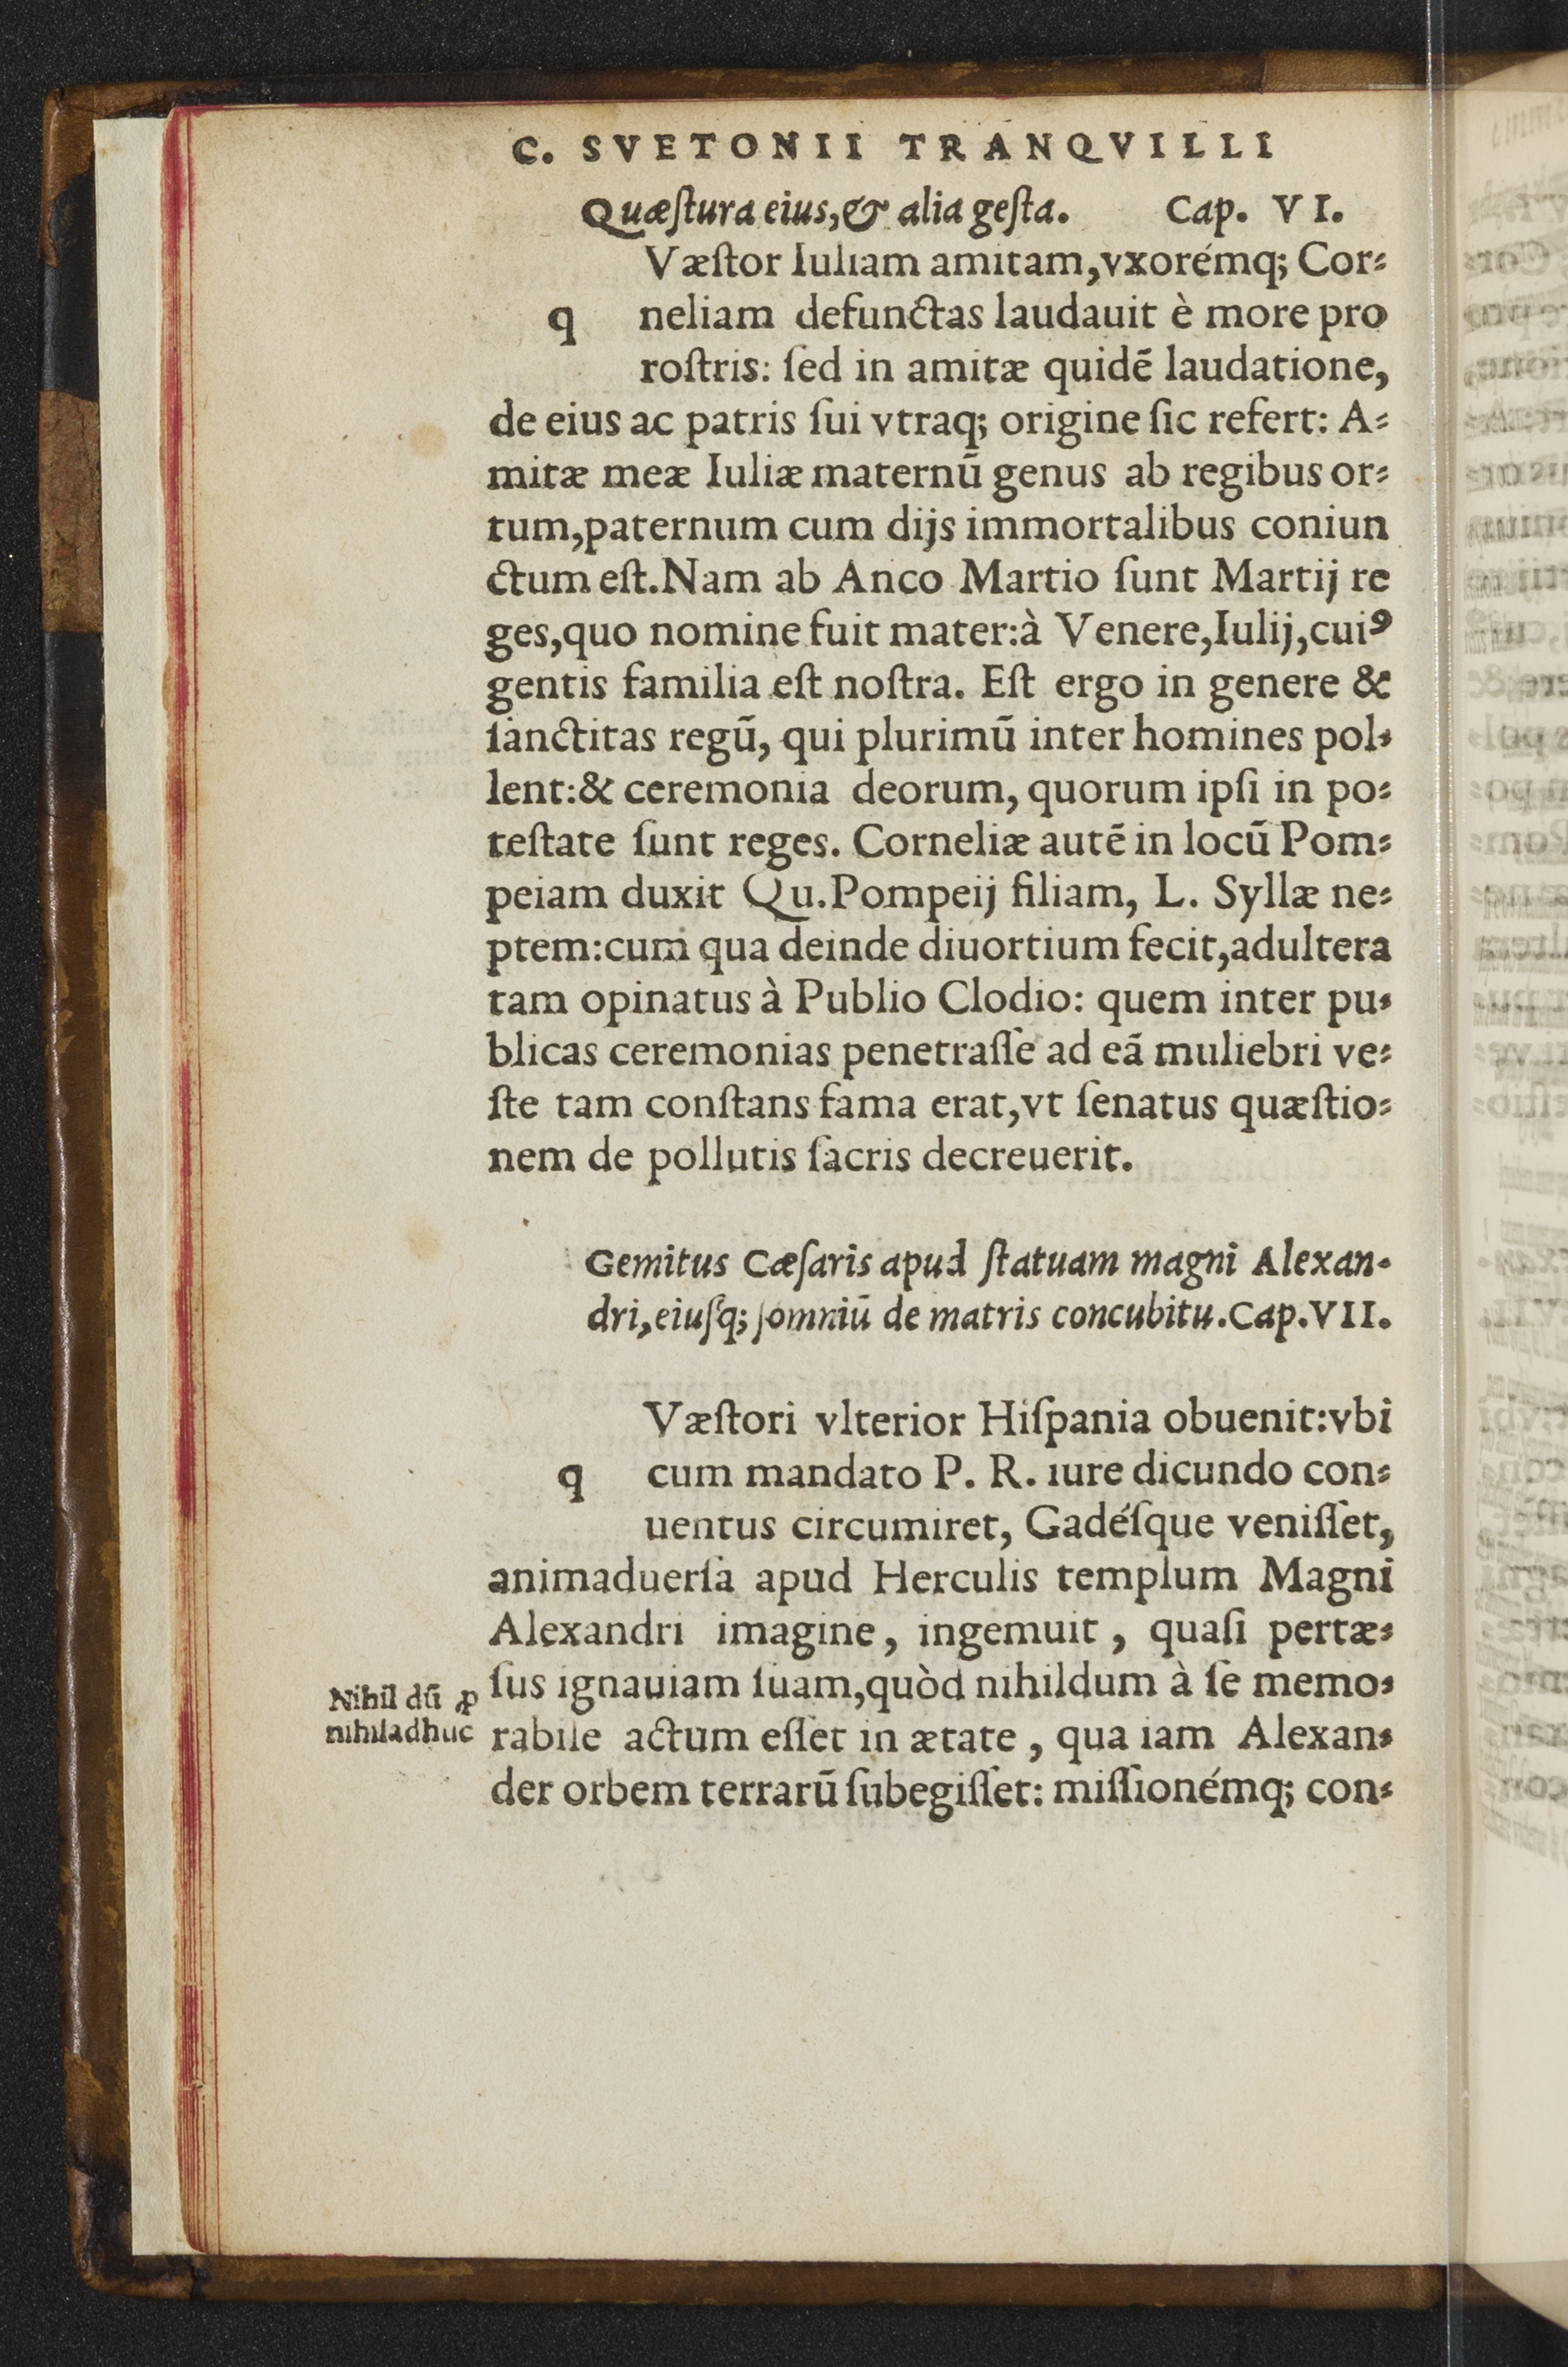 C. SVETONII TRANQVILLI
Quæſtura eius, & alia geſta. Cap. VI.
Væſtor Iuliam amitam,vxorémq; Cor⸗
q neliam defunctas laudauit è more pro
roſtris: ſed in amitæ quidẽ laudatione,
de eius ac patris ſui vtraq; origine ſic refert: A⸗
mitæ meæ Iuliæ maternũ genus ab regibus or⸗
tum,paternum cum dijs immortalibus coniun
ctum eſt.Nam ab Anco Martio ſunt Martij re
ges,quo nomine fuit mater:à Venere,Iulij,cuiꝰ
gentis familia eſt noſtra. Eſt ergo in genere &
ſanctitas regũ, qui plurimũ inter homines pol⸗
lent:& ceremonia deorum, quorum ipſi in po⸗
teſtate ſunt reges. Corneliæ autẽ in locũ Pom⸗
peiam duxit Qu.Pompeij filiam, L. Syllæ ne⸗
ptem:cum qua deinde diuortium fecit,adultera
tam opinatus à Publio Clodio: quem inter pu⸗
blicas ceremonias penetraſſe ad eã muliebri ve⸗
ſte tam conſtans fama erat,vt ſenatus quæſtio⸗
nem de pollutis ſacris decreuerit.
Gemitus Cæſaris apud ſtatuam magni Alexan-
dri,eiuſq; ſomniũ de matris concubitu.Cap.VII.
Væſtori vlterior Hiſpania obuenit:vbi
q cum mandato P. R. iure dicundo con⸗
uentus circumiret, Gadéſque veniſſet,
animaduerſa apud Herculis templum Magni
Alexandri imagine, ingemuit, quaſi pertæ⸗
ſus ignauiam ſuam,quòd nihildum à ſe memo⸗
rabile actum eſſet in ætate, qua iam Alexan⸗
der orbem terrarũ ſubegiſſet: miſſionémq; con⸗
Nihil dũ ꝓ
nihiladhuc